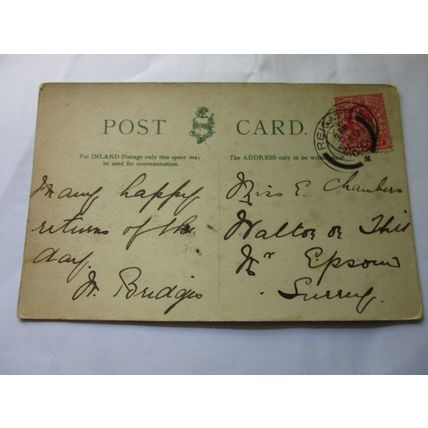 POST CARD.
For INLAND Postage only this space may
be used for communication.
The ADDRESS only to be written here.
REIGATE
Many happy
returns of the
day.
W. Bridges
Miss E. Chambers
Walton on Hill
Nr Epsom
Surrey.